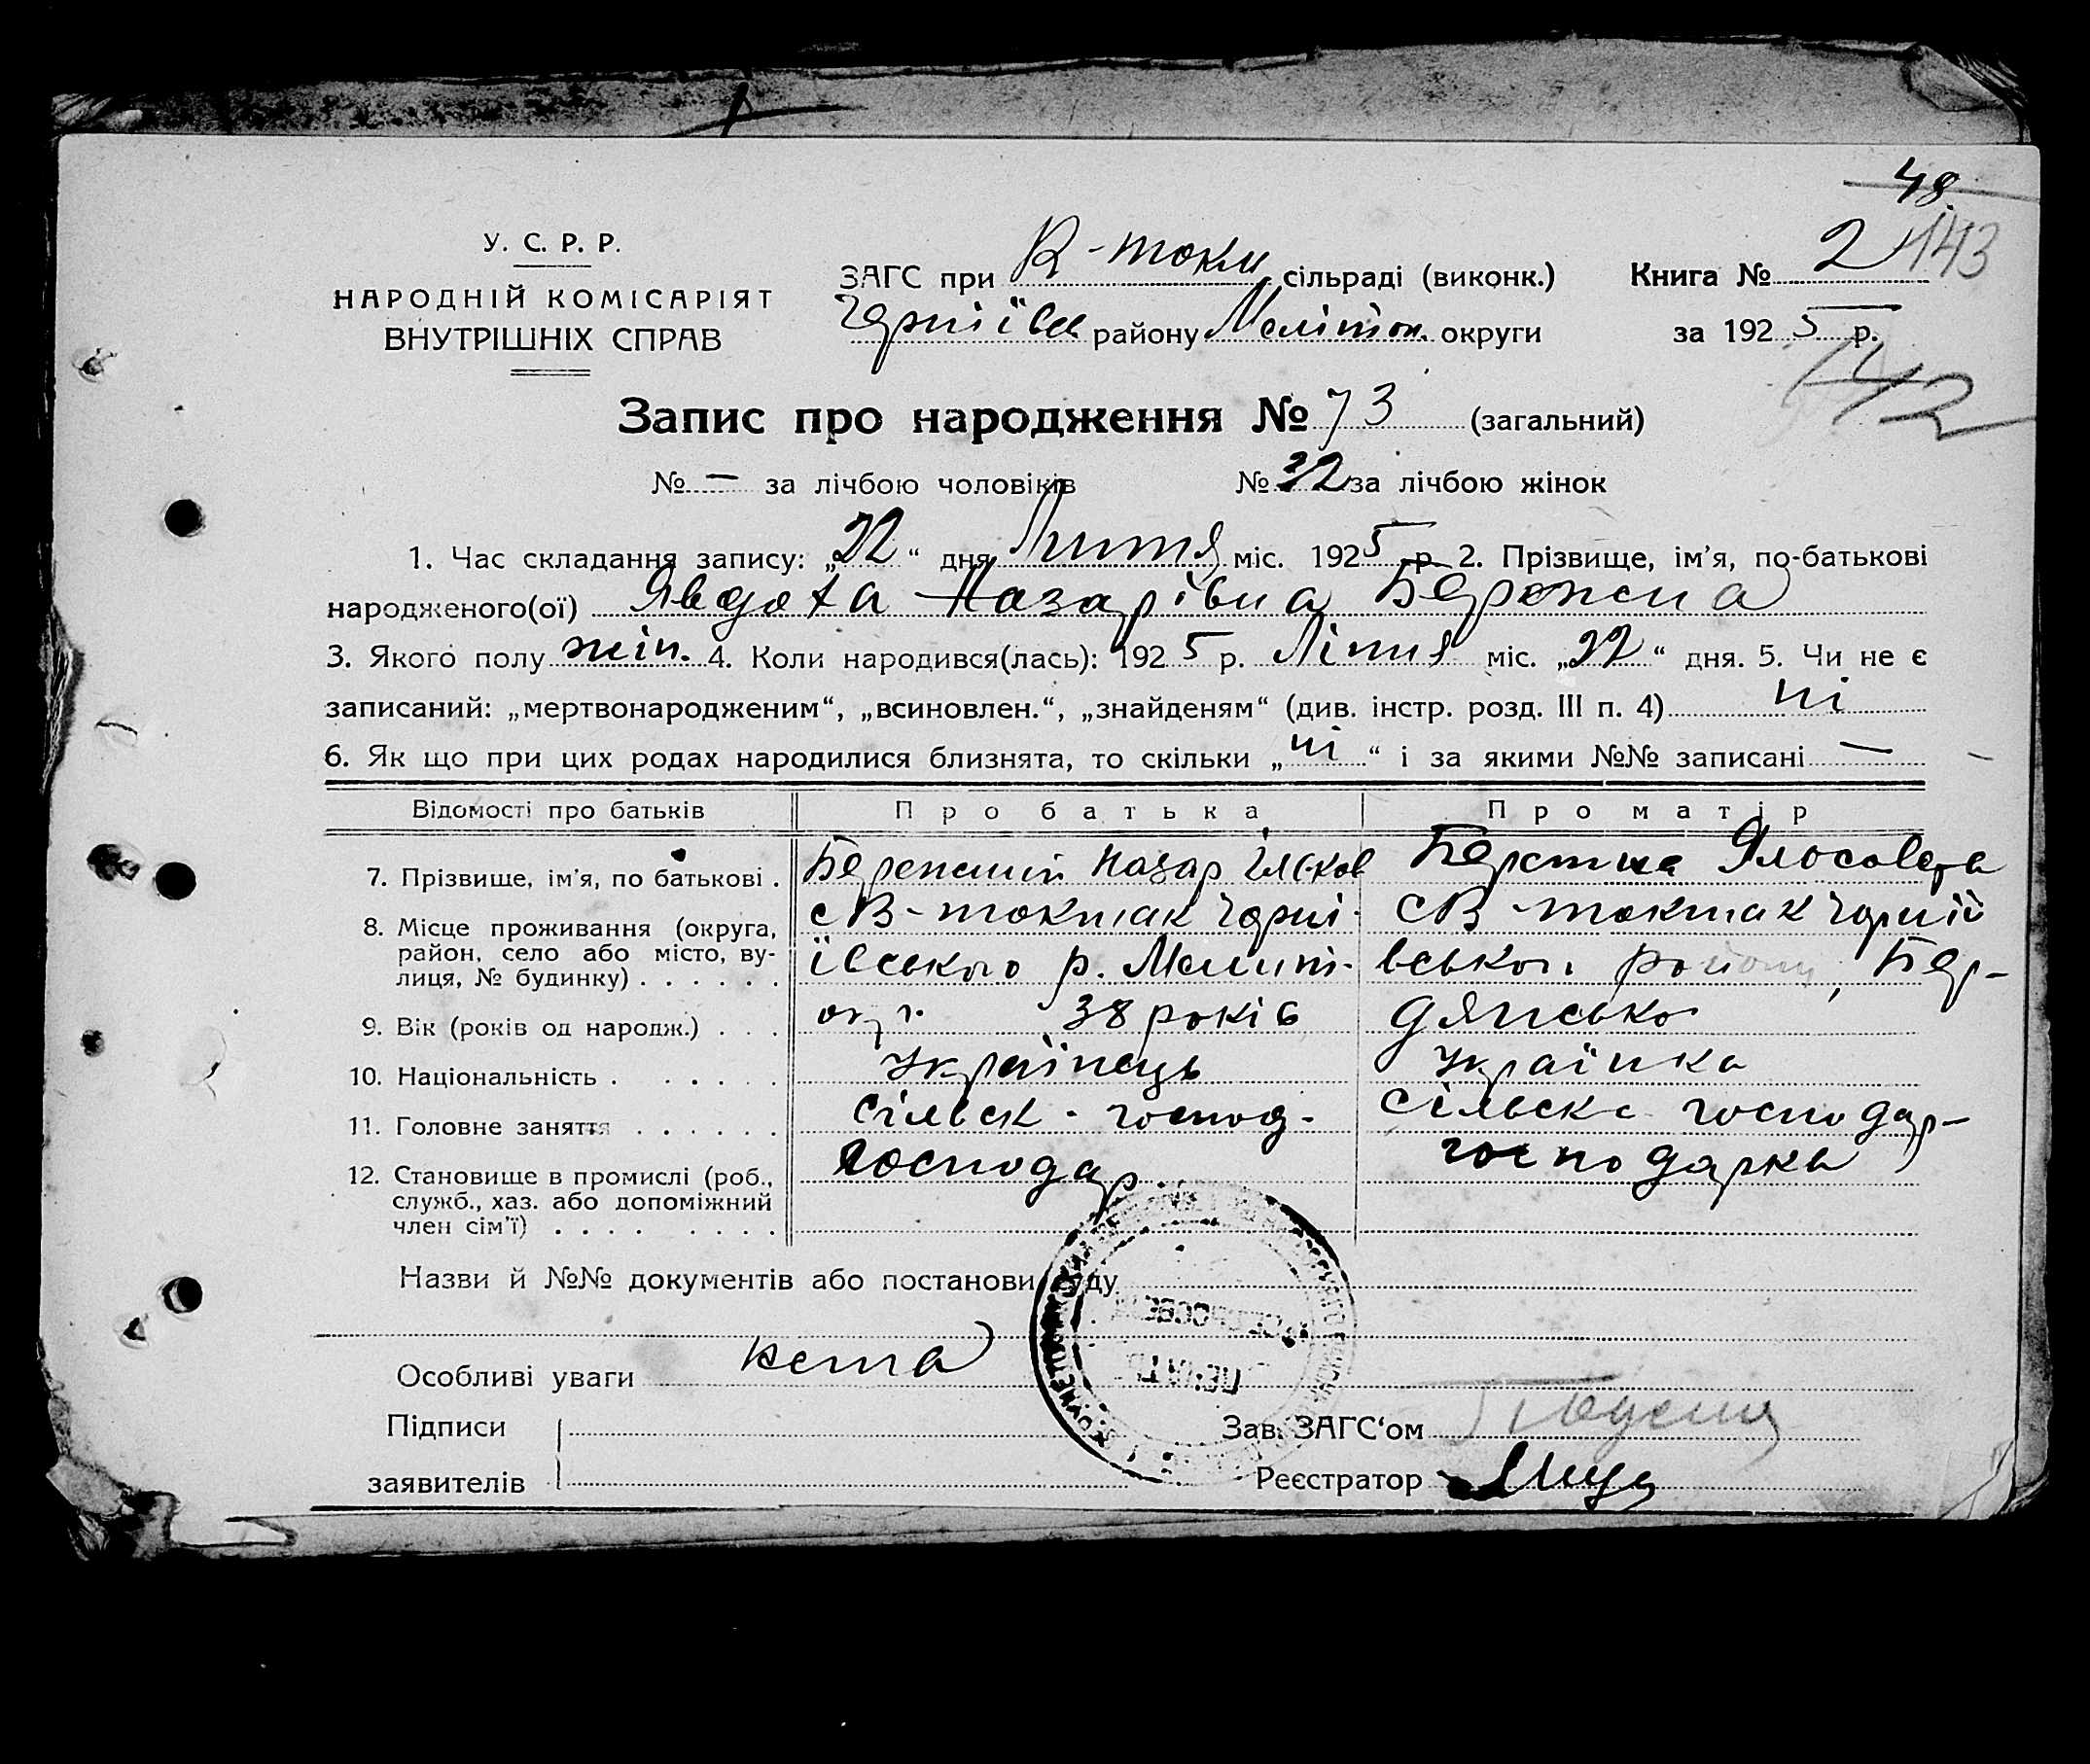 48
У. С. Р. Р.
НАРОДНІЙ КОМІСАРІЯТ
ВНУТРІШНІХ СПРАВ
ЗАГС при В-токм. сільраді (виконк.)
Черніївс району Меліт ок. округи
Книга № 2 143
за 1925 р.
142
Запис про народження № 73 (загальний)
№ — за лічбою чоловіків № 32 за лічбою жінок
1. Час складання запису: „22“ дня Липня міс. 1925 р. 2. Прізвище, ім'я, по-батькові
народженого(ої) Явдоха Назарівна Бережна
3. Якого полу жін. 4. Коли народився(лась): 1925 р. Ліпня міс. „22“ дня. 5. Чи не є
записаний: „мертвонародженим“, „всиновлен.“, „знайденям“ (див. інстр. розд. III п. 4) ні
6. Як що при цих родах народилися близнята, то скільки „ні“ і за якими №№ записані —
Відомості про батьків Про батька Про матір
7. Прізвище, ім'я, по батькові . Бережний Назар Ялосовета
8. Місце проживання (округа, район, село або місто, вулиця, № будинку) . . . . . . сВ-токмак Черні- ївського р. Мелит- окр. сВ-токмак Черніївського району, Бердянсько
9. Вік (років од народж.) . . . 38 років
10. Національність . . . . . . Українець Українка
11. Головне заняття . . . . . . сільск-господ. сільско господар-
12. Становище в промислі (роб., служб., хаз. або допоміжний член сім'ї) . . . . . . . . господар господарка
Назви й №№ документів або постанови суду
Особливі уваги нема
Підписи
заявителів
Зав. ЗАГС'ом
Реєстратор